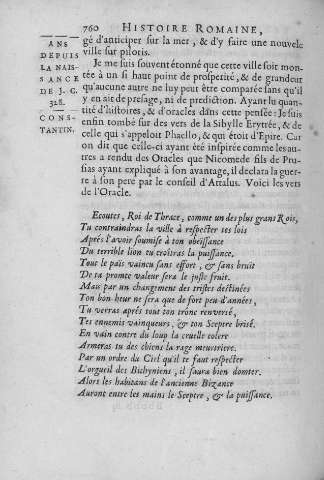 760 HISTOIRE ROMAINE,
ANS
DEPUIS
LA NAIS-
SANCE
DE J. C.
328.
CONS-
TANTIN.
gé d'anticiper sur la mer, & d'y faire une nouvelle
ville sur pilotis.
Je me suis souvent étonné que cette ville soit mon-
tée à un si haut point de prosperité, & de grandeur
qu'aucune autre ne luy peut être comparée sans qu'il
y en ait de presage, ni de prediction. Ayant lu quan-
tité d'histoires, & d'oracles dans cette pensée: Je suis
enfin tombé sur des vers de la Sibylle Erytrée, & de
celle qui s'appeloit Phaello, & qui étoit d'Epire. Car
on dit que celle-ci ayant été inspirée comme les au-
tres a rendu des Oracles que Nicomede fils de Pru-
sias ayant expliqué à son avantage, il declara la guer-
re à son pere par le conseil d'Attalus. Voici les vers
de l'Oracle.
Ecoutes, Roi de Thrace, comme un des plus grans Rois,
Tu contraindras la ville à respecter tes lois
Aprés l'avoir soumise à ton obeïssance
Du terrible lion tu croîtras la puissance.
Tout le païs vaincu sans effort, & sans bruit
De ta promte valeur sera le juste fruit.
Mais par un changement des tristes destinées
Ton bon heur ne sera que de fort peu d'années,
Tu verras aprés tout ton trône renversé,
Tes ennemis vainqueurs, & ton Sceptre brisé.
En vain contre du loup la cruelle colere
Armeras tu des chiens la rage meurtriere.
Par un ordre du Ciel qu'il te faut respecter
L'orgueil des Bithyniens, il saura bien domter.
Alors les habitans de l'ancienne Bizance
Auront entre les mains le Sceptre, & la puissance.